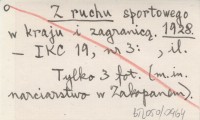 Z ruchu sportowego
w kraju i zagranicą. 1928.
– IKC 19, nr 3: , il.
Tylko 3 fot. (m.in.
narciarstwo w Zakopanem).